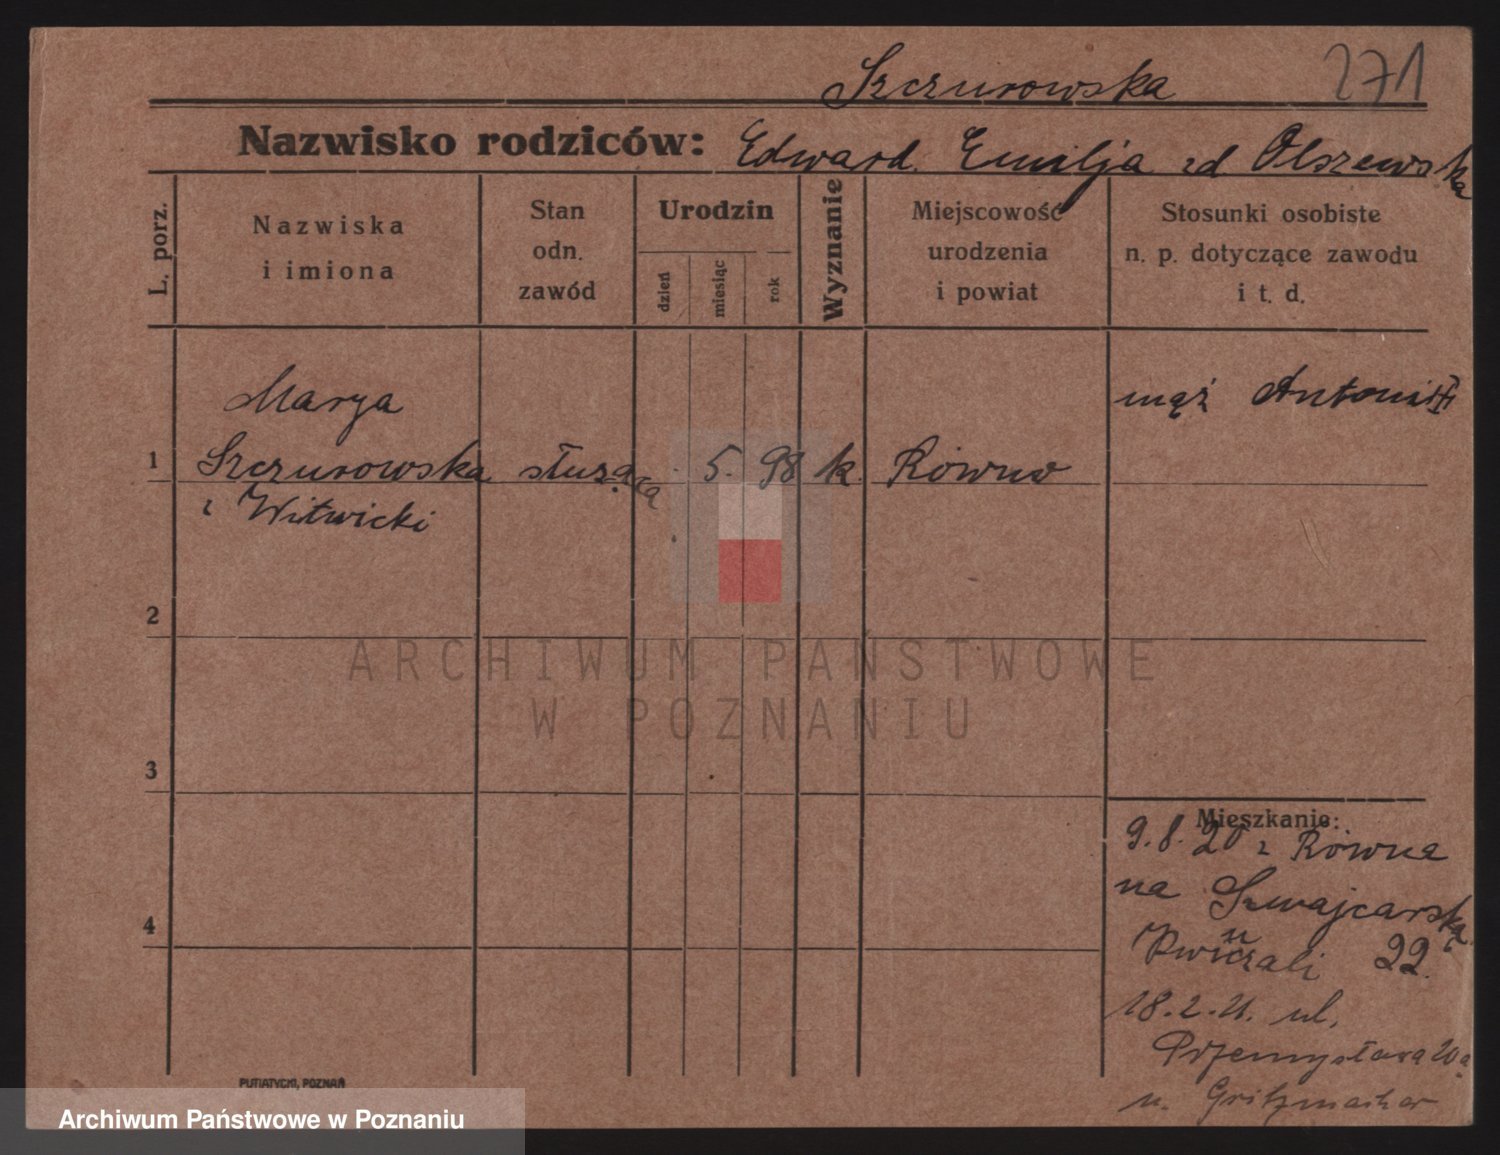 Szczurowska 271
Nazwisko rodziców: Edward. Emilja zd Olszewska
L. porz.
Nazwiska
i imiona
Stan
odn.
zawód
Urodzin
dzień
miesiąc
rok
Wyznanie
Miejscowość
urodzenia
i powiat
Stosunki osobiste
n. p. dotyczące zawodu
i t. d.
Marya
mąż Antoni
1 Szczurowska służąca 5. 98 k. Równo
z Witwicki
2
ARCHIWUM PAŃSTWOWE
W POZNANIU
3
Mieszkanie:
9.8.20 z Równa
na Szwajcarska
u
Kwiczali 22.
4
18.2.21. ul.
Przemysława 20a
u. Gritzmacher
PUTIATYCKI, POZNAŃ
Archiwum Państwowe w Poznaniu